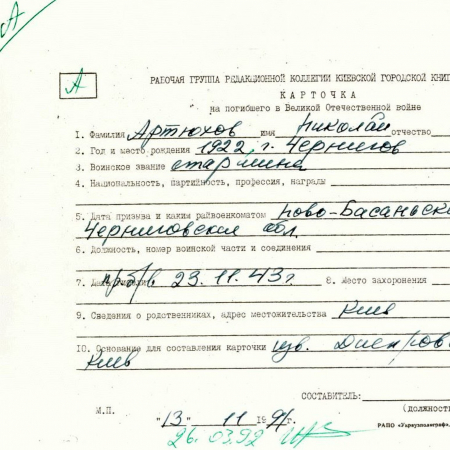 А
А
РАБОЧАЯ ГРУППА РЕДАКЦИОННОЙ КОЛЛЕГИИ КИЕВСКОЙ ГОРОДСКОЙ КНИГ
КАРТОЧКА
на погибшего в Великой Отечественной войне
1. Фамилия Артюхов имя Николай отчество
2. Год и место рождения 1922 г. Чернигов
3. Воинское звание старшина
4. Национальность, партийность, профессия, награды
5. Дата призыва и каким райвоенкоматом Ново-Басаньск
Черниговская обл.
6. Должность, номер воинской части и соединения
7. пр б/в 23.11.43 г. 8. Место захоронения
9. Сведения о родственниках, адрес местожительства Киев
10. Основание для составления карточки изв. Днепров
Киев
СОСТАВИТЕЛЬ:
(должность
М.П. "13" 11 1991 г.
РАПО «Укрвузполиграф».
26.03.92